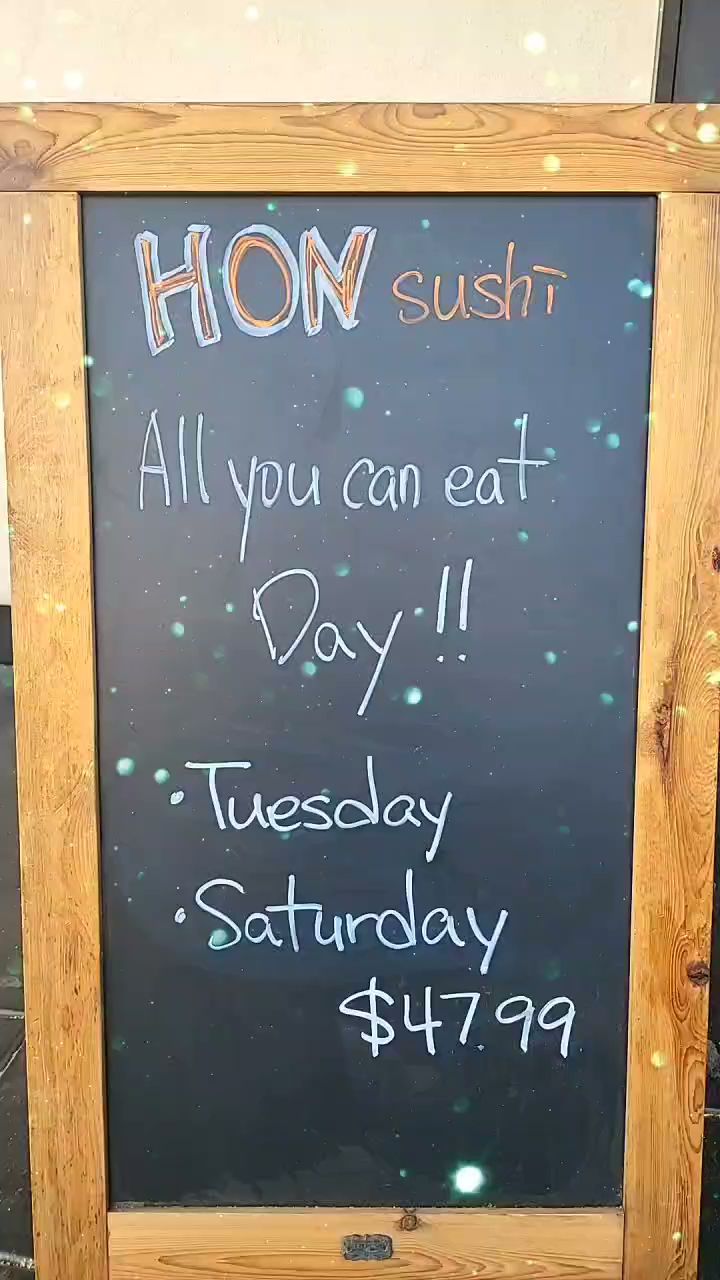 HON sushi
All you can eat
Day !!
• Tuesday
• Saturday
$47.99